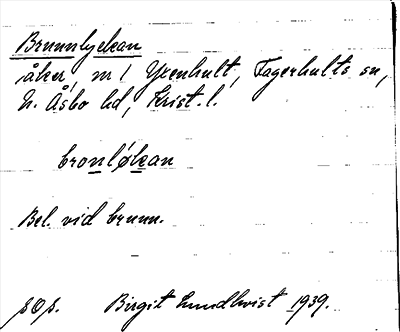 Brunnlyckan
åker, n:o 1 Yxenhult, Fagerhults sn,
N. Åsbo hd, Krist. l.
bronløkan
Bel. vid brunn.
Birgit Lundkvist 1939.